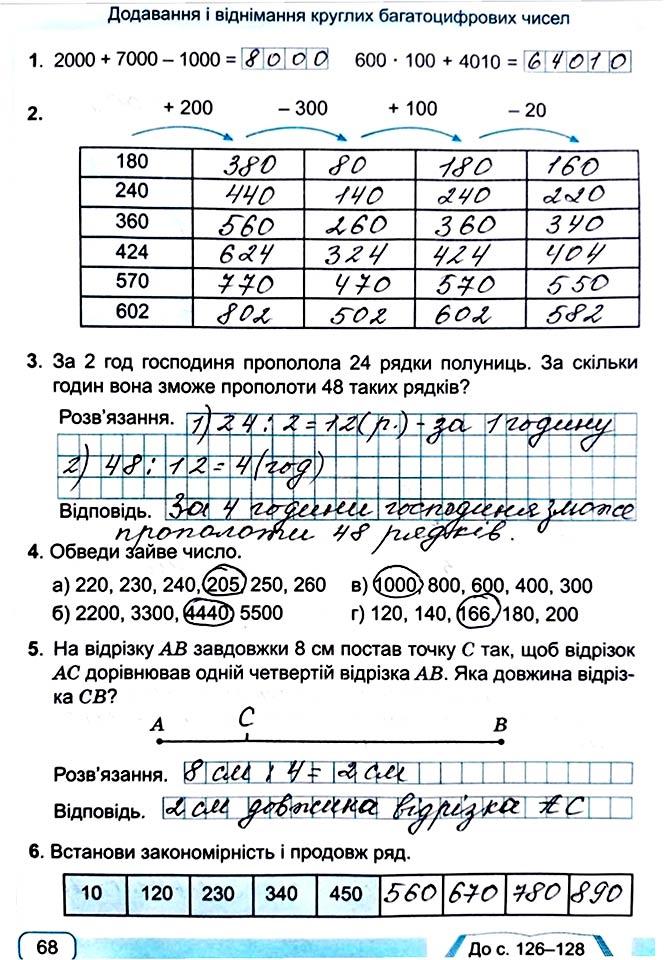 Додавання і віднімання круглих багатоцифрових чисел
1. 2000 + 7000 – 1000 = 8000 600 · 100 + 4010 = 64010
2. + 200 – 300 + 100 – 20
180 380 80 180 160
240 440 140 240 220
360 560 260 360 340
424 624 324 424 404
570 770 470 570 550
602 802 502 602 582
3. За 2 год господиня прополола 24 рядки полуниць. За скільки
годин вона зможе прополоти 48 таких рядків?
Розв'язання. 1) 24 : 2 = 12 (р.) - за 1 годину
2) 48 : 12 = 4 (год)
Відповідь. За 4 години господиня зможе
прополоти 48 рядків.
4. Обведи зайве число.
а) 220, 230, 240, 205, 250, 260 в) 1000, 800, 600, 400, 300
б) 2200, 3300, 4440, 5500 г) 120, 140, 166, 180, 200
5. На відрізку AB завдовжки 8 см постав точку C так, щоб відрізок
AC дорівнював одній четвертій відрізка AB. Яка довжина відріз-
ка CB?
A C B
Розв'язання. 8 см : 4 = 2 см
Відповідь. 2 см довжина відрізка АС
6. Встанови закономірність і продовж ряд.
10 120 230 340 450 560 670 780 890
68 До с. 126–128